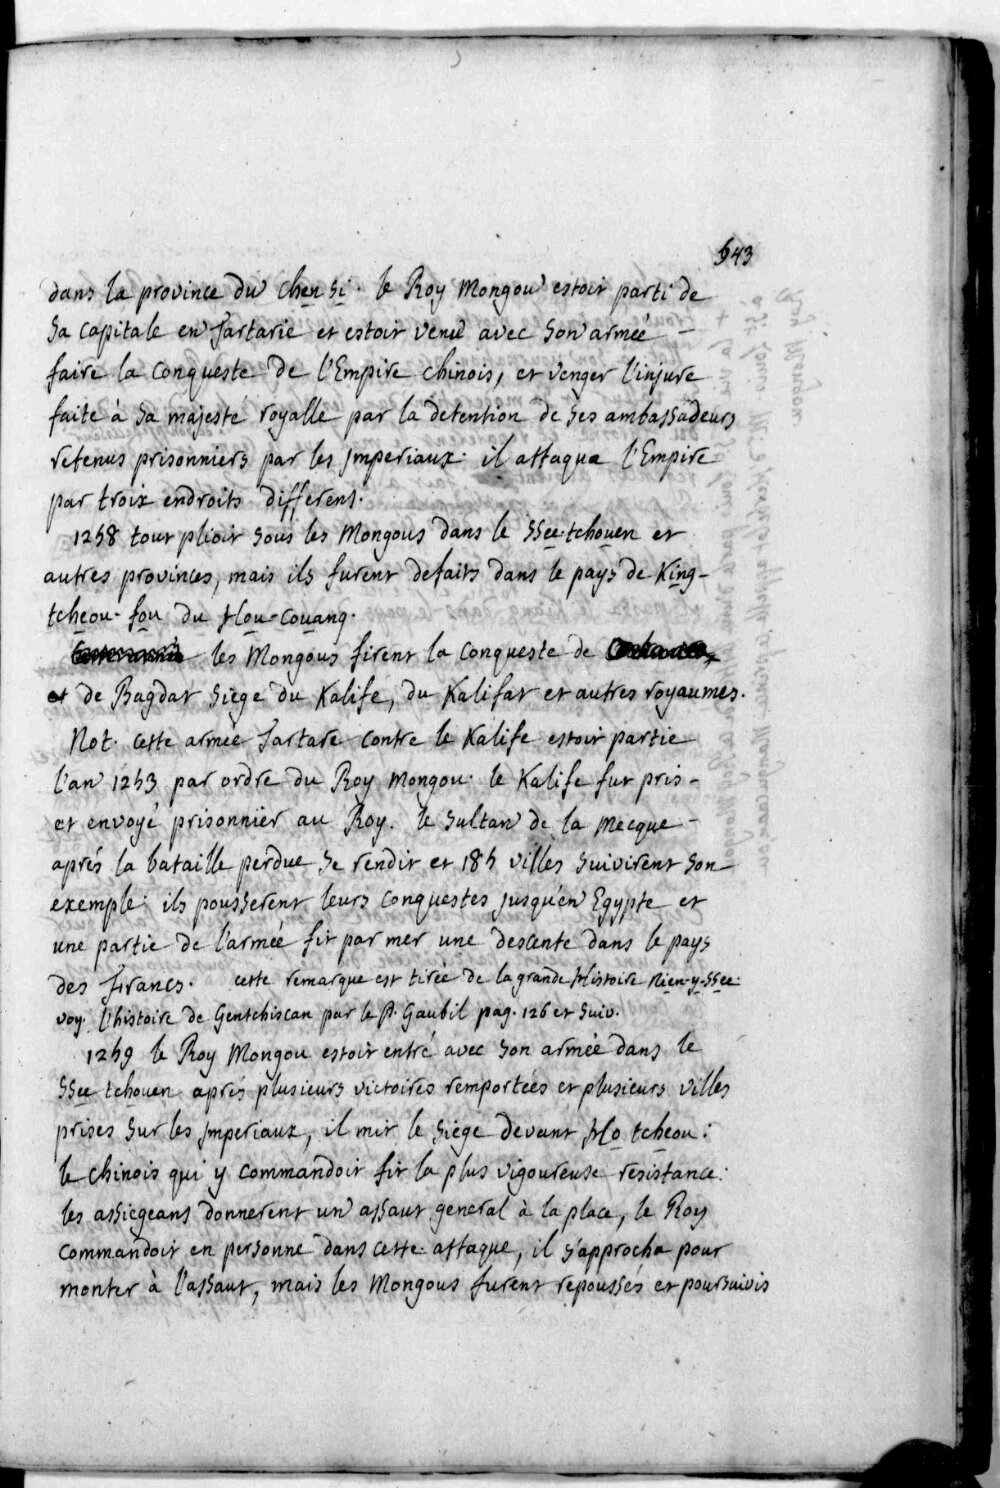 543
dans la province du chen si. le Roy Mongou estoit parti de
sa capitale en Tartarie et estoit venu avec son armée
faire la conqueste de l'Empire chinois, et venger l'injure
faite à sa majesté royalle par la detention de ses ambassadeurs
retenus prisonniers par les jmperiaux. il attaqua l'Empire
par troix endroits differens.
1258 tout plioit sous les Mongous dans le ssee-tchouen et
autres provinces, mais ils furent defaits dans le pays de King-
tcheou-fou du Hou-couang.
les Mongous firent la conqueste de
et de Bagdat siege du Kalife, du Kalifat et autres royaumes.
Not. cette armée Tartare contre le Kalife estoit partie
l'an 1253 par ordre du Roy Mongou. le Kalife fut pris
et envoyé prisonnier au Roy. le sultan de la Mecque
aprés la bataille perdue se rendit et 185 villes suivirent son
exemple. ils pousserent leurs conquestes jusqu'en Egypte et
une partie de l'armée fit par mer une descente dans le pays
des francs. cette remarque est tirée de la grande Histoire Nien-y-ssee.
voy. l'histoire de Gentchiscan par le P. Gaubil pag. 126 et suiv.
1259 le Roy Mongou estoit entré avec son armée dans le
ssee tchouen aprés plusieurs victoires remportées et plusieurs villes
prises sur les jmperiaux, il mit le siege devant Ho tcheou:
le chinois qui y commandoit fit la plus vigoureuse resistance:
les assiegeans donnerent un assaut general à la place, le Roy
commandoit en personne dans cette attaque, il s'approcha pour
monter à l'assaut, mais les Mongous furent repoussés et poursuivis